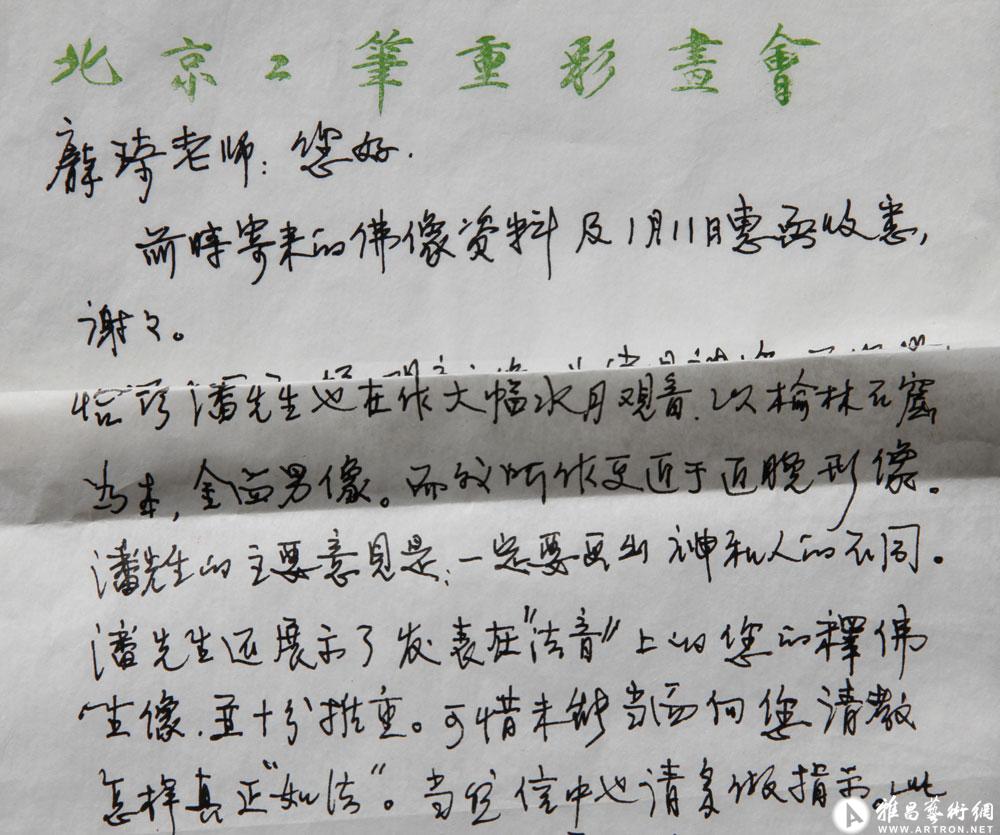 北京工筆重彩畫會
龐琦老师：您好.
前时寄来的佛像资料及1月11日惠函收悉，
谢々。
恰巧潘先生也在作大幅水月观音.以榆林石窟
为本，全为男像。而我所作更近于近晚形像。
潘先生的主要意见是：一定要画出神和人的不同。
潘先生还展示了发表在“法音”上的您的釋佛
坐像.並十分推重。可惜未能当面向您请教
怎样真正“如法”。当望信中也请多做指示.此
雅昌藝術網
WWW.ARTRON.NET